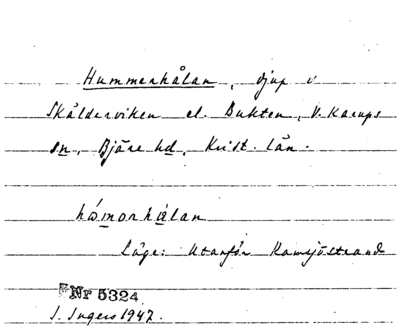 Hummerhålan, djup i
Skälderviken el. Bukten, V. Karups
sn, Bjäre hd, Krist. län.
håmorhålan
Läge: Utanför Ramsjöstrand
Nr 5324
I. Ingers 1947.